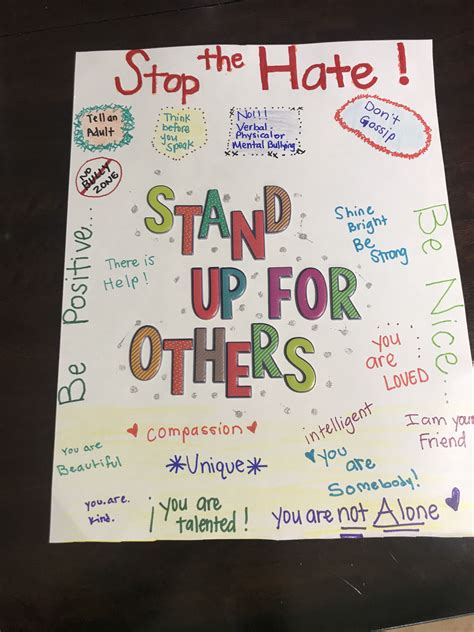 Stop the Hate!
Tell an
Adult
Think
before
you
Speak
No!!!
Verbal
Physical or
Mental Bullying
Don't
Gossip
NO
BULLY
ZONE
Be Positive...
STAND
UP FOR
OTHERS
There is
Help!
Shine
Bright
Be
Strong
Be Nice...
you
are
LOVED
compassion
intelligent
I am your
Friend
you are
Beautiful
*Unique*
you
are
Somebody!
you.are.
kind.
¡you are
talented!
you are not Alone